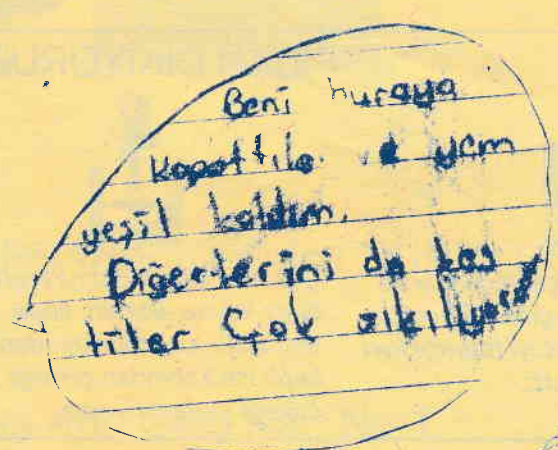 Beni buraya
kapattıla. ve yem
yeşil kaldım.
Diğerlerini de kes
tiler Çok sıkılıyor